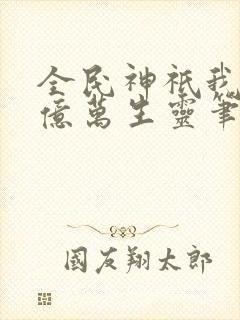 全民神祇我
億萬生靈筆
國友翔太郎